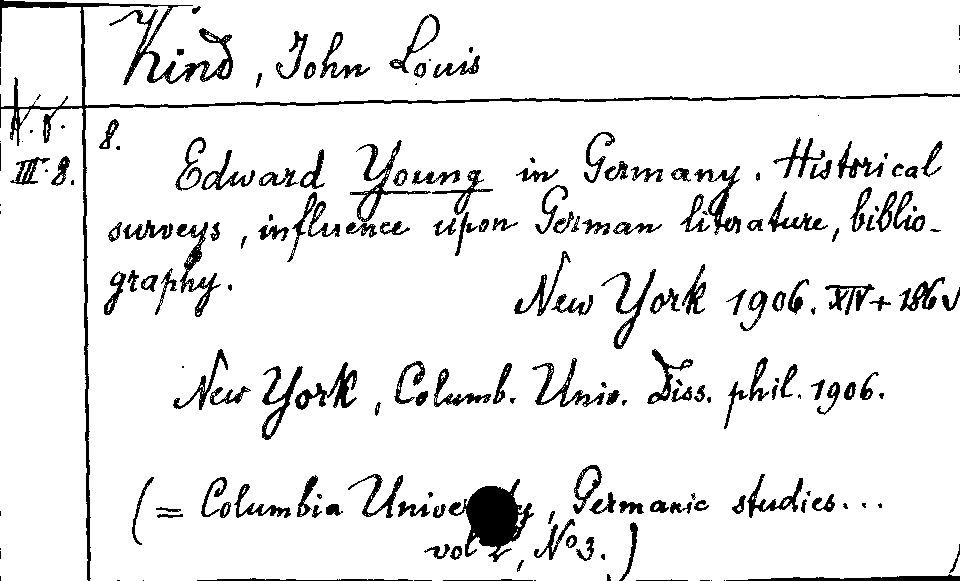 Kind, John Louis
N.F. 8.
III.8. Edward Young in Germany. Historical
surveys, influence upon German literature, biblio-
graphy.
New York 1906. XIV + 186
New York, Columb. Univ. Diss. phil. 1906.
(= Columbia University, Germanic studies...
vol 2, No 3.)